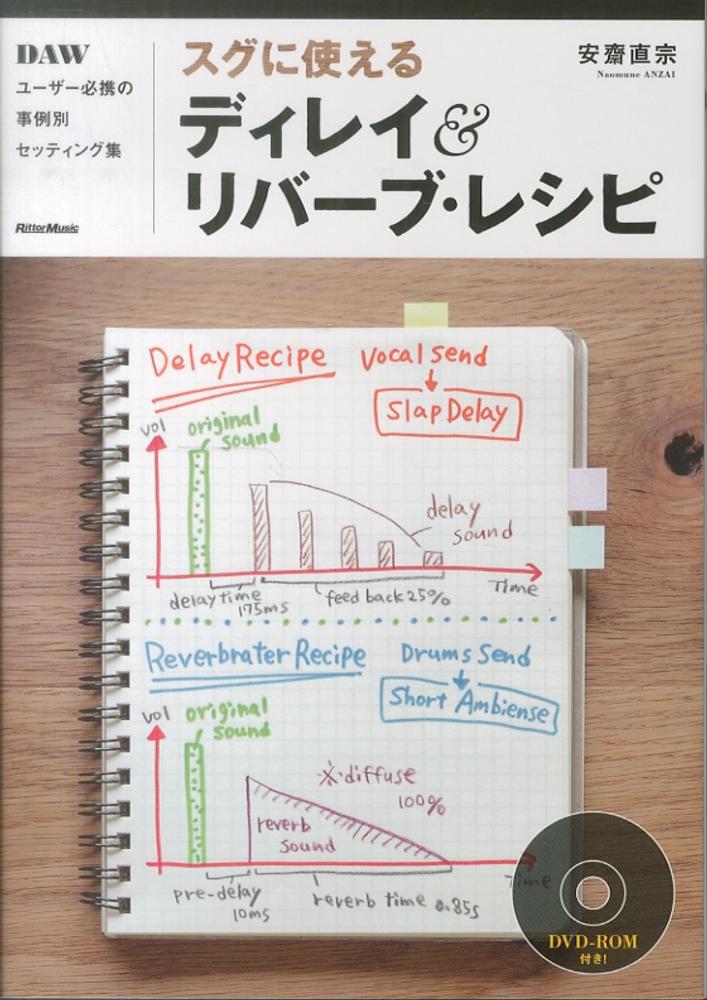 DAW
ユーザー必携の
事例別
セッティング集
RittorMusic
スグに使える
ディレイ&
リバーブ・レシピ
安齋直宗
Naomune ANZAI
Delay Recipe
Vocal Send
Slap Delay
vol
original
sound
delay
sound
Time
delay time
175ms
feed back 25%
Reverbrater Recipe
Drums Send
Short Ambiense
vol
original
sound
※diffuse
100%
reverb
sound
Time
pre-delay
10ms
reverb time 0.85s
DVD-ROM
付き!